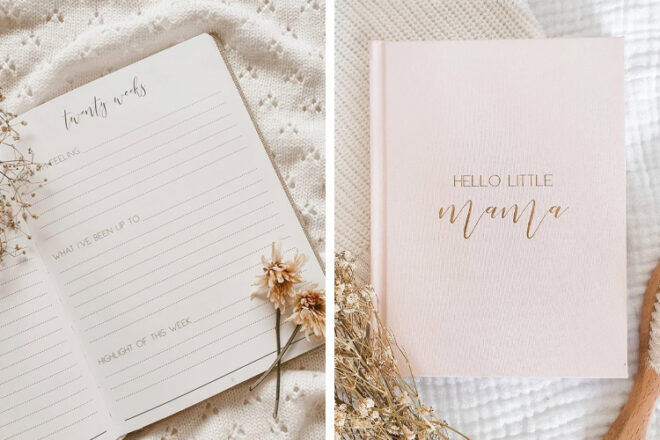 twenty weeks
FEELING
WHAT I'VE BEEN UP TO
HIGHLIGHT OF THIS WEEK
HELLO LITTLE
mama